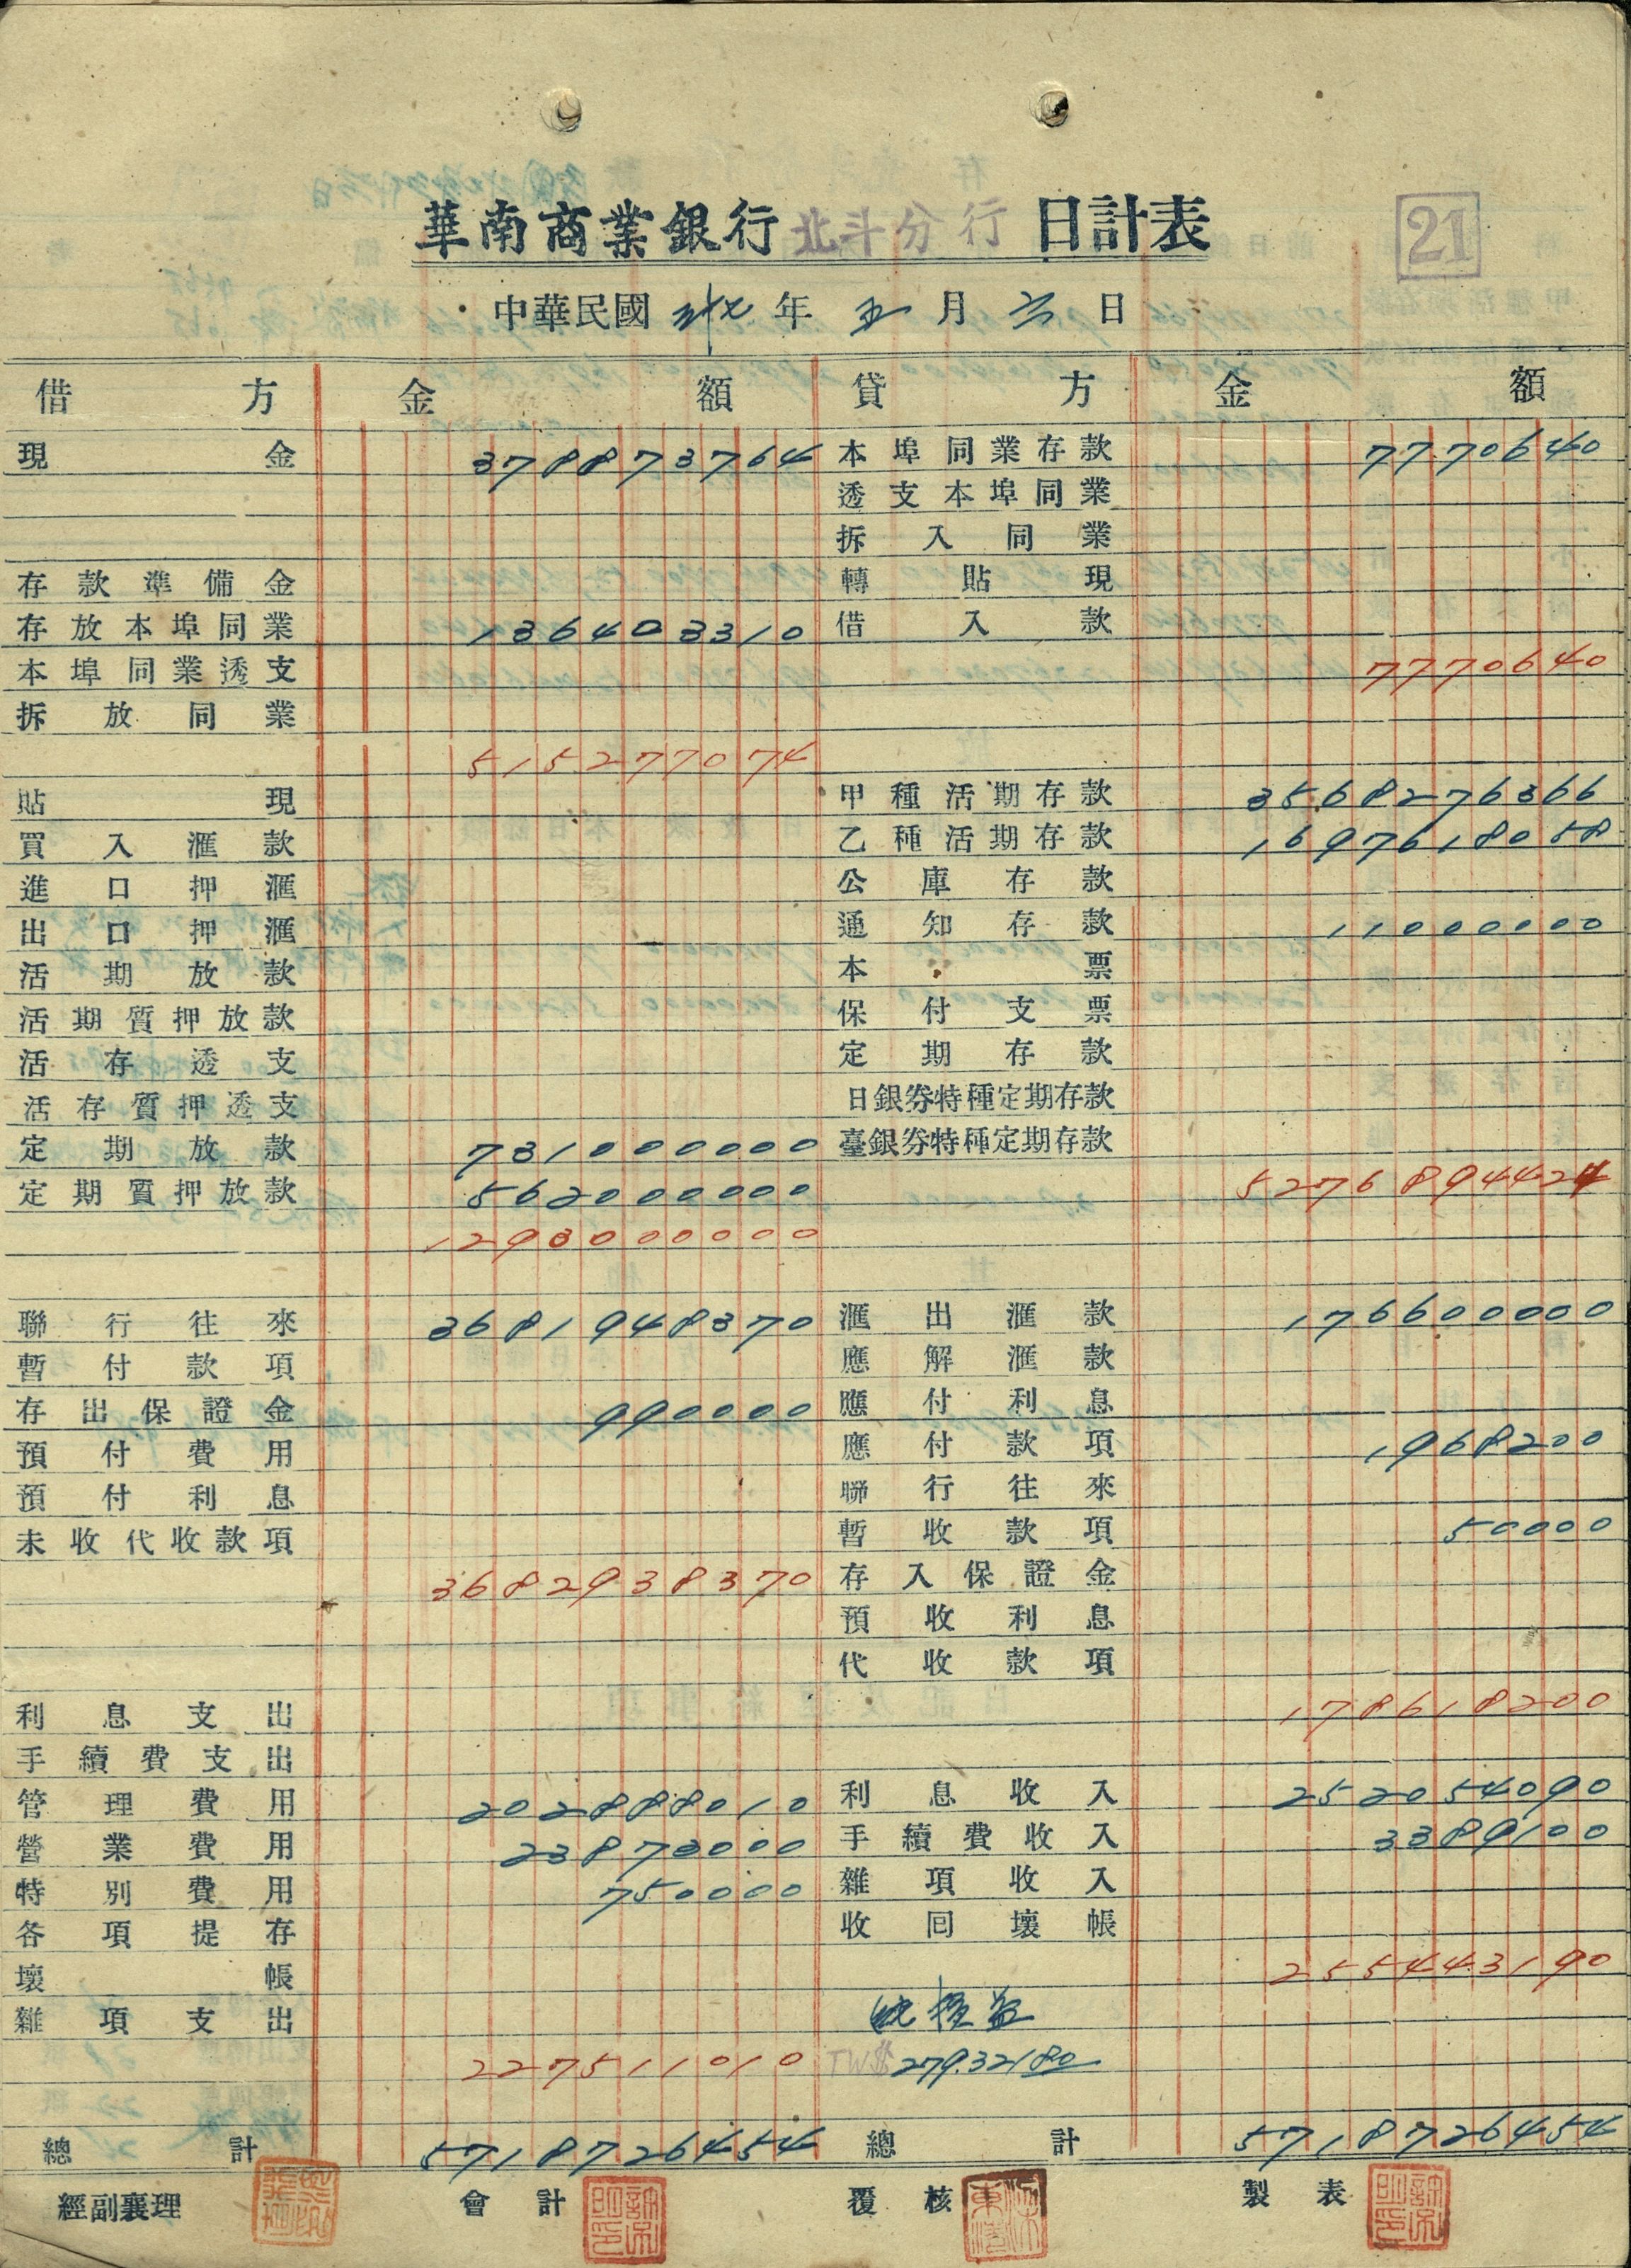 華南商業銀行 北斗分行 日計表
21
中華民國 卅七 年 五 月 六 日
借方 金額 貸方 金額
現金 378873764 本埠同業存款 7770640
透支本埠同業
拆入同業
存款準備金 轉貼現
存放本埠同業 136403310 借入款
本埠同業透支 7770640
拆放同業
515277074
貼現 甲種活期存款 3568276366
買入滙款 乙種活期存款 1697618058
進口押滙 公庫存款
出口押滙 通知存款 11000000
活期放款 本票
活期質押放款 保付支票
活存透支 定期存款
活存質押透支 日銀券特種定期存款
定期放款 731000000 臺銀券特種定期存款
定期質押放款 562000000 5276894424
1293000000
聯行往來 3681948370 滙出滙款 176600000
暫付款項 應解滙款
存出保證金 990000 應付利息
預付費用 應付款項 1968200
預付利息 聯行往來
未收代收款項 暫收款項 50000
3682938370 存入保證金
預收利息
代收款項
利息支出 178618200
手續費支出
管理費用 202888010 利息收入 252054090
營業費用 23873000 手續費收入 3389100
特別費用 750000 雜項收入
各項提存 收囘壞帳
壞帳 255443190
雜項支出 純損益
227511010 TW$ 279.32180
總計 5718726454 總計 5718726454
經副襄理 會計 覆核 製表